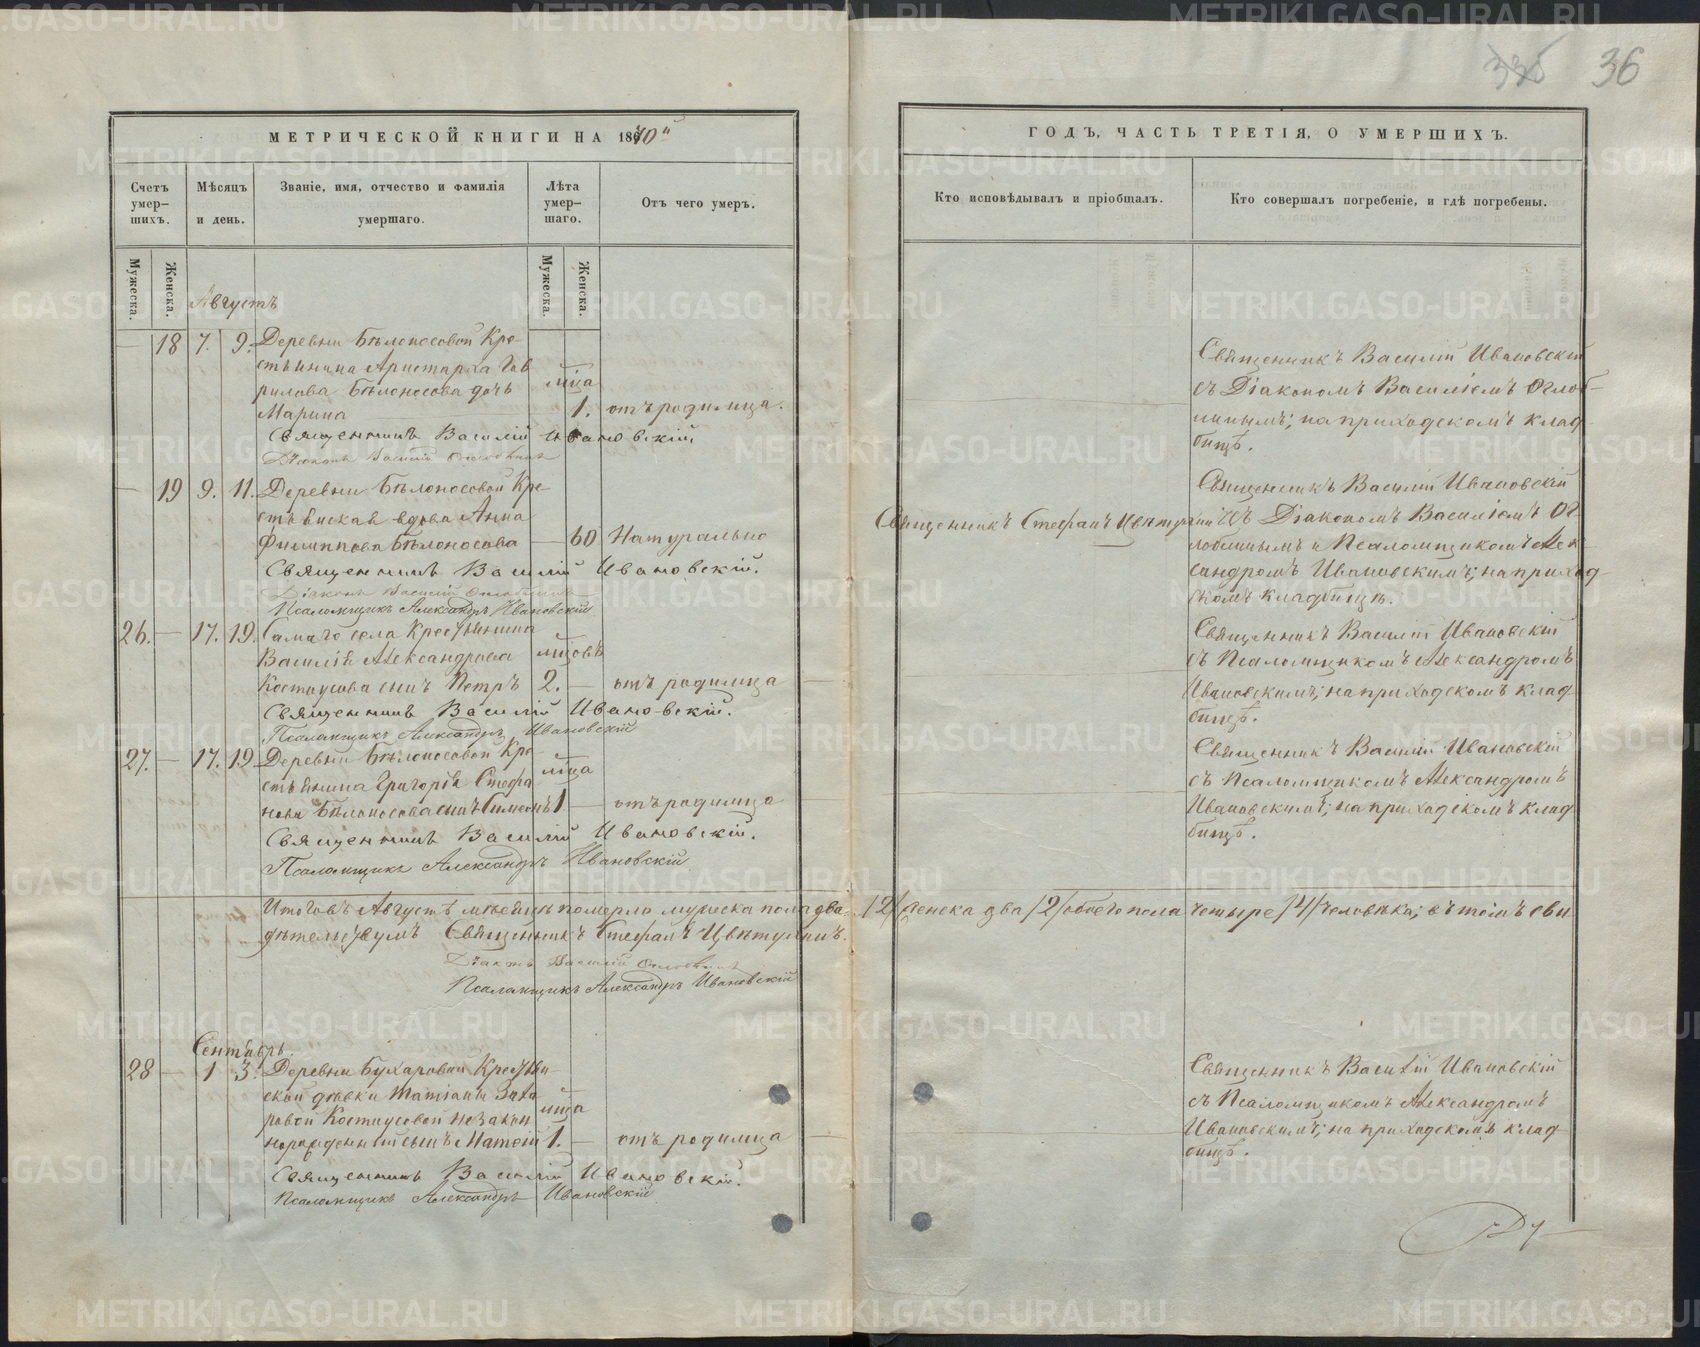 336 36
МЕТРИЧЕСКОЙ КНИГИ НА 1870й
Счетъ умер-шихъ.
Мѣсяцъ и день.
Званіе, имя, отчество и фамилія умершаго.
Лѣта умер-шаго.
Отъ чего умеръ.
Мужеска.
Женска.
Мужеска.
Женска.
Августъ
— 18 7. 9. Деревни Бѣлоносовой Кре-
стьянина Аристарха Гав
рилова Бѣлоносова дочь мца
Марина 1. отъ родимца.
Священникъ Василій Ивановскій
Діаконъ Василій Оглоблинъ
— 19 9. 11. Деревни Бѣлоносовой Кре
стьянская вдова Анна
Филиппова Бѣлоносова — 60 Натурально
Священникъ Василій Ивановскій.
Діаконъ Василій Оглоблинъ
Псаломщикъ Александръ Ивановскій
26. — 17. 19. Самаго села Крестьянина
Василія Александрова мцовъ
Костоусова сынъ Петръ 2. — отъ родимца
Священникъ Василій Ивановскій.
Псаломщикъ Александръ Ивановскій
27. — 17. 19. Деревни Бѣлоносовой Кре-
стьянина Григорія Стефа мца
нова Бѣлоносова сынъ Симеонъ 1 — отъ родимца
Священникъ Василій Ивановскій.
Псаломщикъ Александръ Ивановскій
Итого въ Августѣ мѣсяцѣ померло мужеска пола два
дѣтельствуемъ Священникъ Стефанъ Цвѣтухинъ.
Діаконъ Василій Оглоблинъ
Псаломщикъ Александръ Ивановскій
Сентябрь.
28 — 1 3. Деревни Бухаровой Крестьян
ской дѣвки Татіаны
ровой Костоусовой незакон мца
норожденный сынъ Матѳій 1. — отъ родимца
Священникъ Василій Ивановскій.
Псаломщикъ Александръ Ивановскій
ГОДЪ, ЧАСТЬ ТРЕТІЯ, О УМЕРШИХЪ.
Кто исповѣдывалъ и пріобщалъ.
Кто совершалъ погребеніе, и гдѣ погребены.
Священникъ Василій Ивановскій
съ Діакономъ Василіемъ Оглоб-
линымъ; на приходскомъ клад
бищѣ.
Священникъ Василій Ивановскій
Священникъ Стефанъ Цвѣтухинъ
съ Діакономъ Василіемъ Ог
лоблинымъ и Псаломщикомъ Алек
сандромъ Ивановскимъ; на приход-
скомъ кладбищѣ.
Священникъ Василій Ивановскій
съ Псаломщикомъ Александромъ
Ивановскимъ; на приходскомъ клад
бищѣ.
Священникъ Василій Ивановскій
съ Псаломщикомъ Александромъ
Ивановскимъ; на приходскомъ клад
бищѣ.
/2/ женска два /2/ обоего пола четыре /4/ человѣка; въ томъ сви
Священникъ Василій Ивановскій
съ Псаломщикомъ Александромъ
Ивановскимъ; на приходскомъ клад
бищѣ.
METRIKI.GASO-URAL.RU